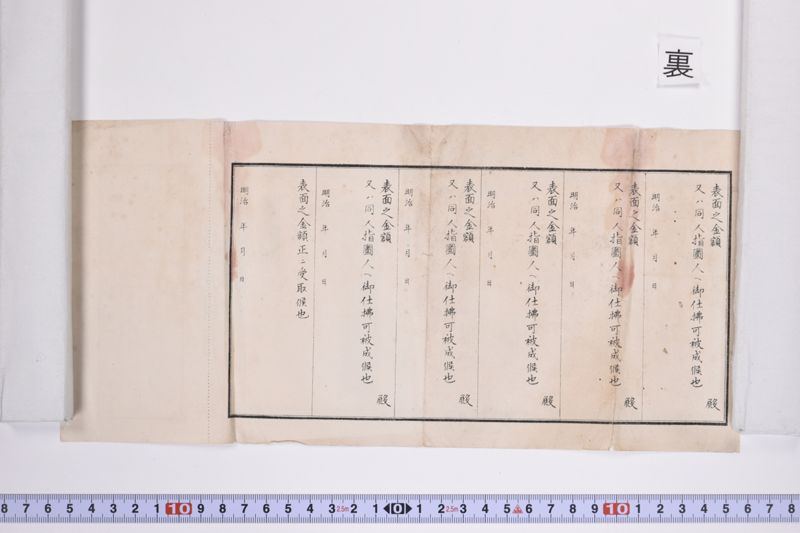 裏
表面之金額
殿
又ハ同人指圖人ヘ御仕拂可被成候也
明治 年 月 日
表面之金額
殿
又ハ同人指圖人ヘ御仕拂可被成候也
明治 年 月 日
表面之金額
殿
又ハ同人指圖人ヘ御仕拂可被成候也
明治 年 月 日
表面之金額
殿
又ハ同人指圖人ヘ御仕拂可被成候也
明治 年 月 日
表面之金額
殿
又ハ同人指圖人ヘ御仕拂可被成候也
明治 年 月 日
表面之金額正ニ受取候也
明治 年 月 日
8 7 6 5 4 3 2 1 10 9 8 7 6 5 4 3 2.5m 2 1 0 1 2 2.5m 3 4 5 6 7 8 9 10 1 2 3 4 5 6 7 8